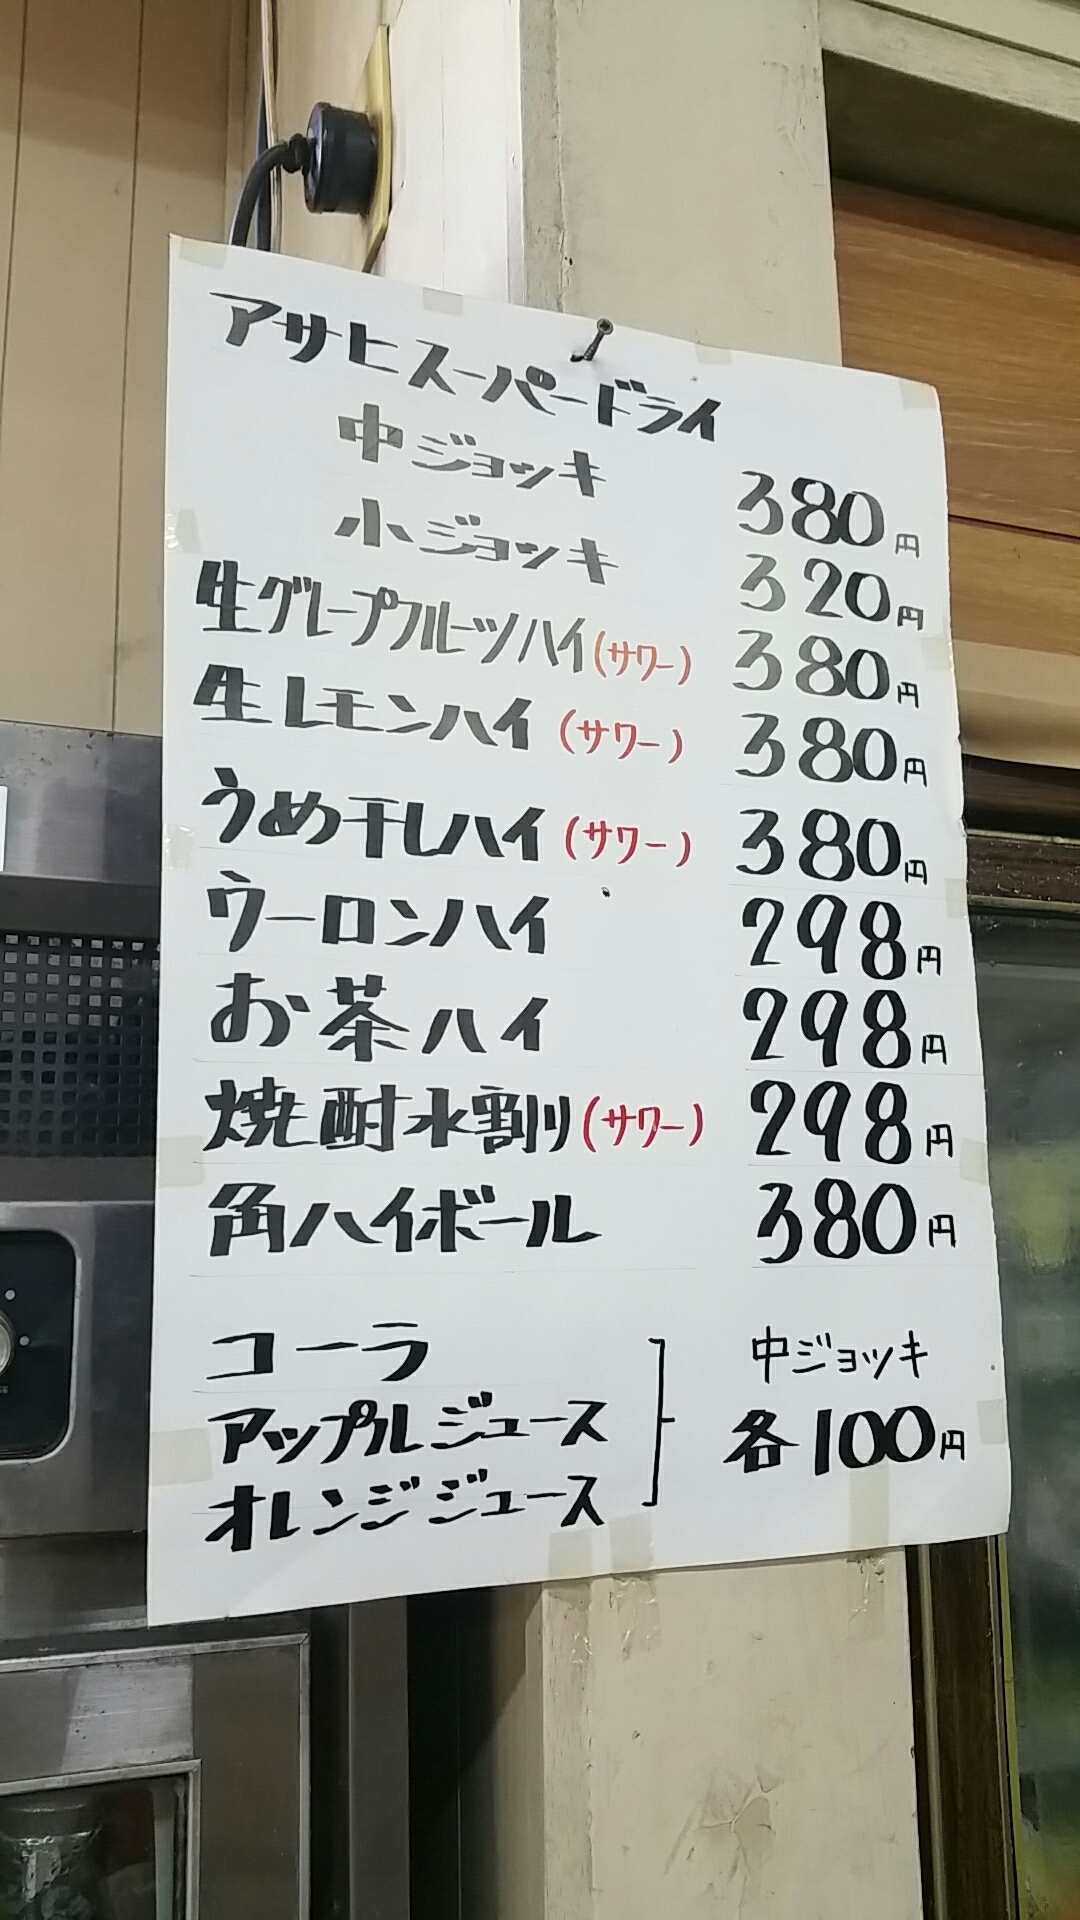 アサヒスーパードライ
中ジョッキ 380円
小ジョッキ 320円
生グレープフルーツハイ(サワー) 380円
生レモンハイ(サワー) 380円
うめ干しハイ(サワー) 380円
ウーロンハイ 298円
お茶ハイ 298円
焼酎水割り(サワー) 298円
角ハイボール 380円
コーラ 中ジョッキ
アップルジュース 各100円
オレンジジュース